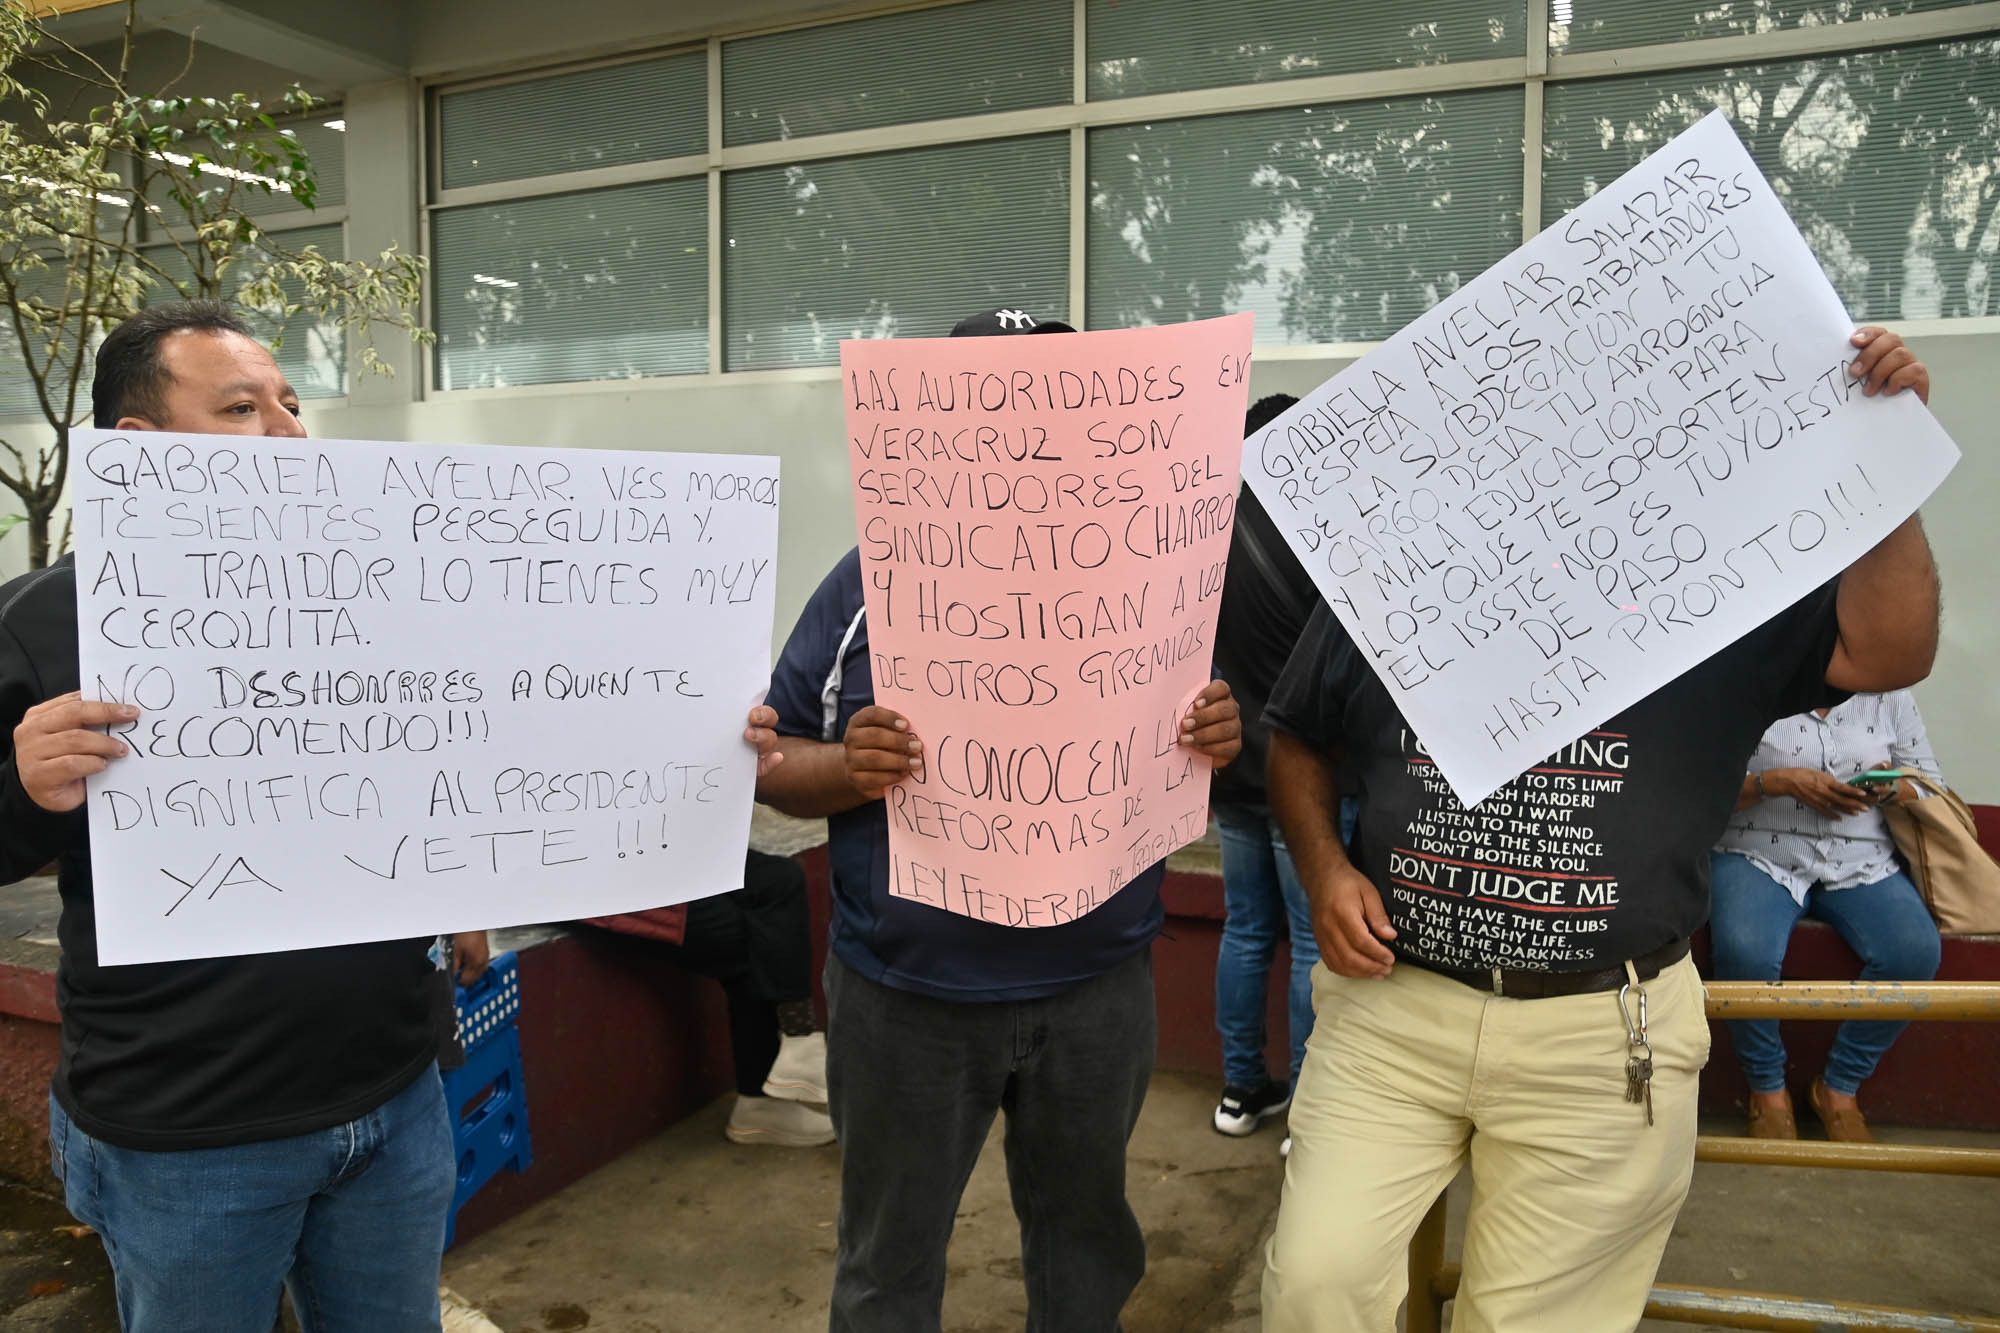 GABRIELA AVELAR. VES MOROS,
TE SIENTES PERSEGUIDA Y,
AL TRAIDOR LO TIENES MUY
CERQUITA.
NO DESHONRRES A QUIEN TE
RECOMENDO!!!
DIGNIFICA AL PRESIDENTE
YA VETE!!!
NY
LAS AUTORIDADES EN
VERACRUZ SON
SERVIDORES DEL
SINDICATO CHARRO
Y HOSTIGAN A LOS
DE OTROS GREMIOS
O CONOCEN LA
REFORMAS DE LA
LEY FEDERAL DEL TRABAJO
GABIELA AVELAR SALAZAR
RESPETA A LOS TRABAJADORES
DE LA SUBDEGACION A TU
CARGO, DEJA TU ARROGNCIA
Y MALA EDUCACION PARA
LOS QUE TE SOPORTEN
EL ISSSTE NO ES TUYO, ESTA
DE PASO
HASTA PRONTO!!!
TING
TY TO ITS LIMIT
THEN PUSH HARDER!
I SIT AND I WAIT
I LISTEN TO THE WIND
AND I LOVE THE SILENCE
I DON'T BOTHER YOU.
DON'T JUDGE ME
YOU CAN HAVE THE CLUBS
& THE FLASHY LIFE,
I'LL TAKE THE DARKNESS
OF THE WOODS
ALL DAY,